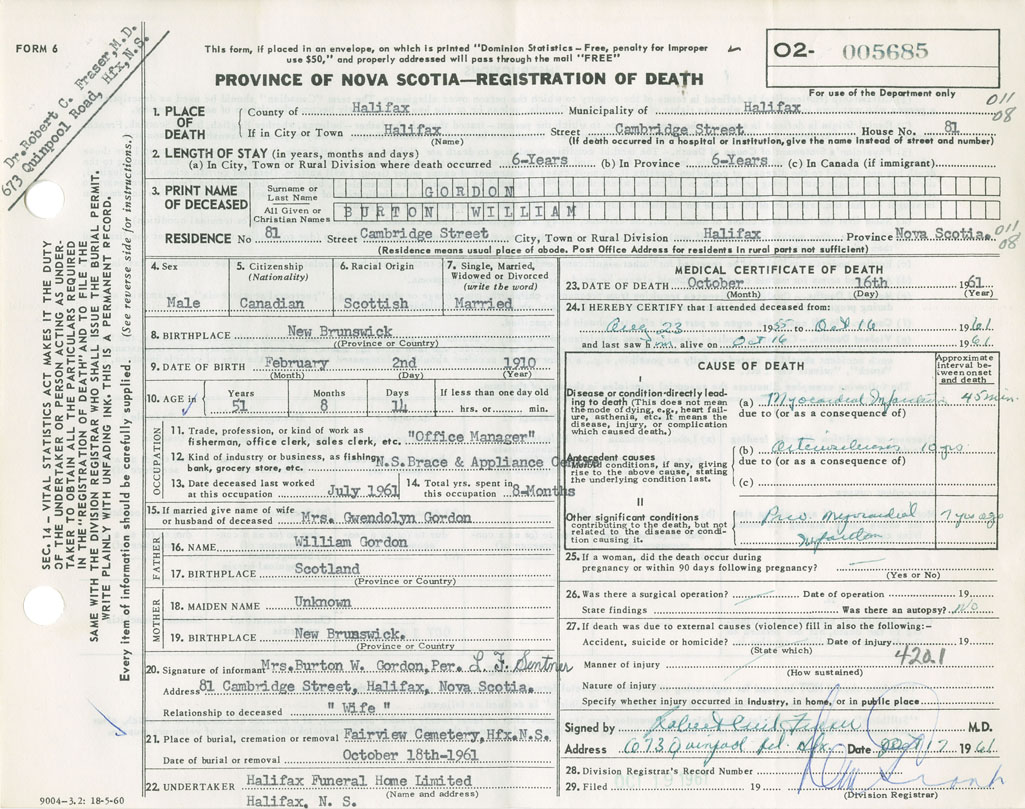 FORM 6
Dr. Robert C. Fraser, M.D.
673 Quinpool Road, Hfx, N.S.
This form, if placed in an envelope, on which is printed "Dominion Statistics – Free, penalty for improper
use $50," and properly addressed will pass through the mail "FREE"
O2- 005685
For use of the Department only
PROVINCE OF NOVA SCOTIA—REGISTRATION OF DEATH
011
08
1. PLACE OF DEATH
County of Halifax Municipality of Halifax
If in City or Town Halifax Street Cambridge Street House No. 81
(Name) (If death occurred in a hospital or institution, give the name instead of street and number)
2. LENGTH OF STAY (in years, months and days)
(a) In City, Town or Rural Division where death occurred 6-Years (b) In Province 6-Years (c) In Canada (if immigrant)
3. PRINT NAME OF DECEASED
Surname or Last Name GORDON
All Given or Christian Names BURTON WILLIAM
RESIDENCE No 81 Street Cambridge Street City, Town or Rural Division Halifax Province Nova Scotia. 011
08
(Residence means usual place of abode. Post Office Address for residents in rural parts not sufficient)
SEC. 14 – VITAL STATISTICS ACT MAKES IT THE DUTY
OF THE UNDERTAKER OR PERSON ACTING AS UNDER-
TAKER TO OBTAIN ALL THE PARTICULARS REQUIRED
IN THE "REGISTRATION OF DEATH" AND TO FILE THE
SAME WITH THE DIVISION REGISTRAR WHO SHALL ISSUE THE BURIAL PERMIT.
WRITE PLAINLY WITH UNFADING INK. THIS IS A PERMANENT RECORD.
Every item of information should be carefully supplied. (See reverse side for instructions.)
4. Sex
Male
5. Citizenship
(Nationality)
Canadian
6. Racial Origin
Scottish
7. Single, Married,
Widowed or Divorced
(write the word)
Married
8. BIRTHPLACE New Brunswick
(Province or Country)
9. DATE OF BIRTH February 2nd 1910
(Month) (Day) (Year)
10. AGE in
Years Months Days If less than one day old
51 8 14 hrs. or min.
OCCUPATION
11. Trade, profession, or kind of work as
fisherman, office clerk, sales clerk, etc. "Office Manager"
12. Kind of industry or business, as fishing,
bank, grocery store, etc. N.S.Brace & Appliance
13. Date deceased last worked
at this occupation July 1961
14. Total yrs. spent in
this occupation 8-Months
15. If married give name of wife
or husband of deceased Mrs. Gwendolyn Gordon
FATHER
16. NAME William Gordon
17. BIRTHPLACE Scotland
(Province or Country)
MOTHER
18. MAIDEN NAME Unknown
19. BIRTHPLACE New Brunswick.
(Province or Country
20. Signature of informant Mrs.Burton W. Gordon, Per. L. F. Sentner
Address 81 Cambridge Street, Halifax, Nova Scotia.
Relationship to deceased " Wife "
21. Place of burial, cremation or removal Fairview Cemetery, Hfx. N.S.
Date of burial or removal October 18th-1961
22. UNDERTAKER Halifax Funeral Home Limited
(Name and address)
Halifax, N. S.
9004–3.2: 18-5-60
MEDICAL CERTIFICATE OF DEATH
23. DATE OF DEATH October 16th 1961
(Month) (Day) (Year)
24. I HEREBY CERTIFY that I attended deceased from:
Aug 23 1955 to Oct 16 1961
and last saw him alive on Oct 16 1961.
CAUSE OF DEATH
Approximate
interval be-
tween onset
and death
I
Disease or condition directly lead-
ing to death (This does not mean
the mode of dying, e.g., heart fail-
ure, asthenia, etc. It means the
disease, injury, or complication
which caused death.)
(a) Myocardial Infarction 45 min.
due to (or as a consequence of)
Antecedent causes
Morbid conditions, if any, giving
rise to the above cause, stating
the underlying condition last.
(b) 10 yrs
due to (or as a consequence of)
(c)
II
Other significant conditions
contributing to the death, but not
related to the disease or condi-
tion causing it.
Prev Myocardial 7 yrs ago
Infarction
25. If a woman, did the death occur during
pregnancy or within 90 days following pregnancy?
(Yes or No)
26. Was there a surgical operation? Date of operation 19
State findings Was there an autopsy? No
27. If death was due to external causes (violence) fill in also the following:–
Accident, suicide or homicide? Date of injury 19
(State which)
420.1
Manner of injury
(How sustained)
Nature of injury
Specify whether injury occurred in Industry, in home, or in public place
Signed by M.D.
Address 673 Quinpool Rd. Hfx. Date Oct 17 1961
28. Division Registrar's Record Number
29. Filed 19
(Division Registrar)